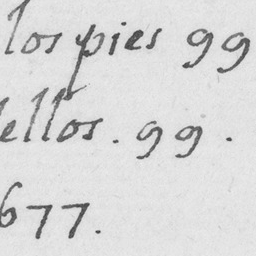 los pies 99
ellos. 99.
677.